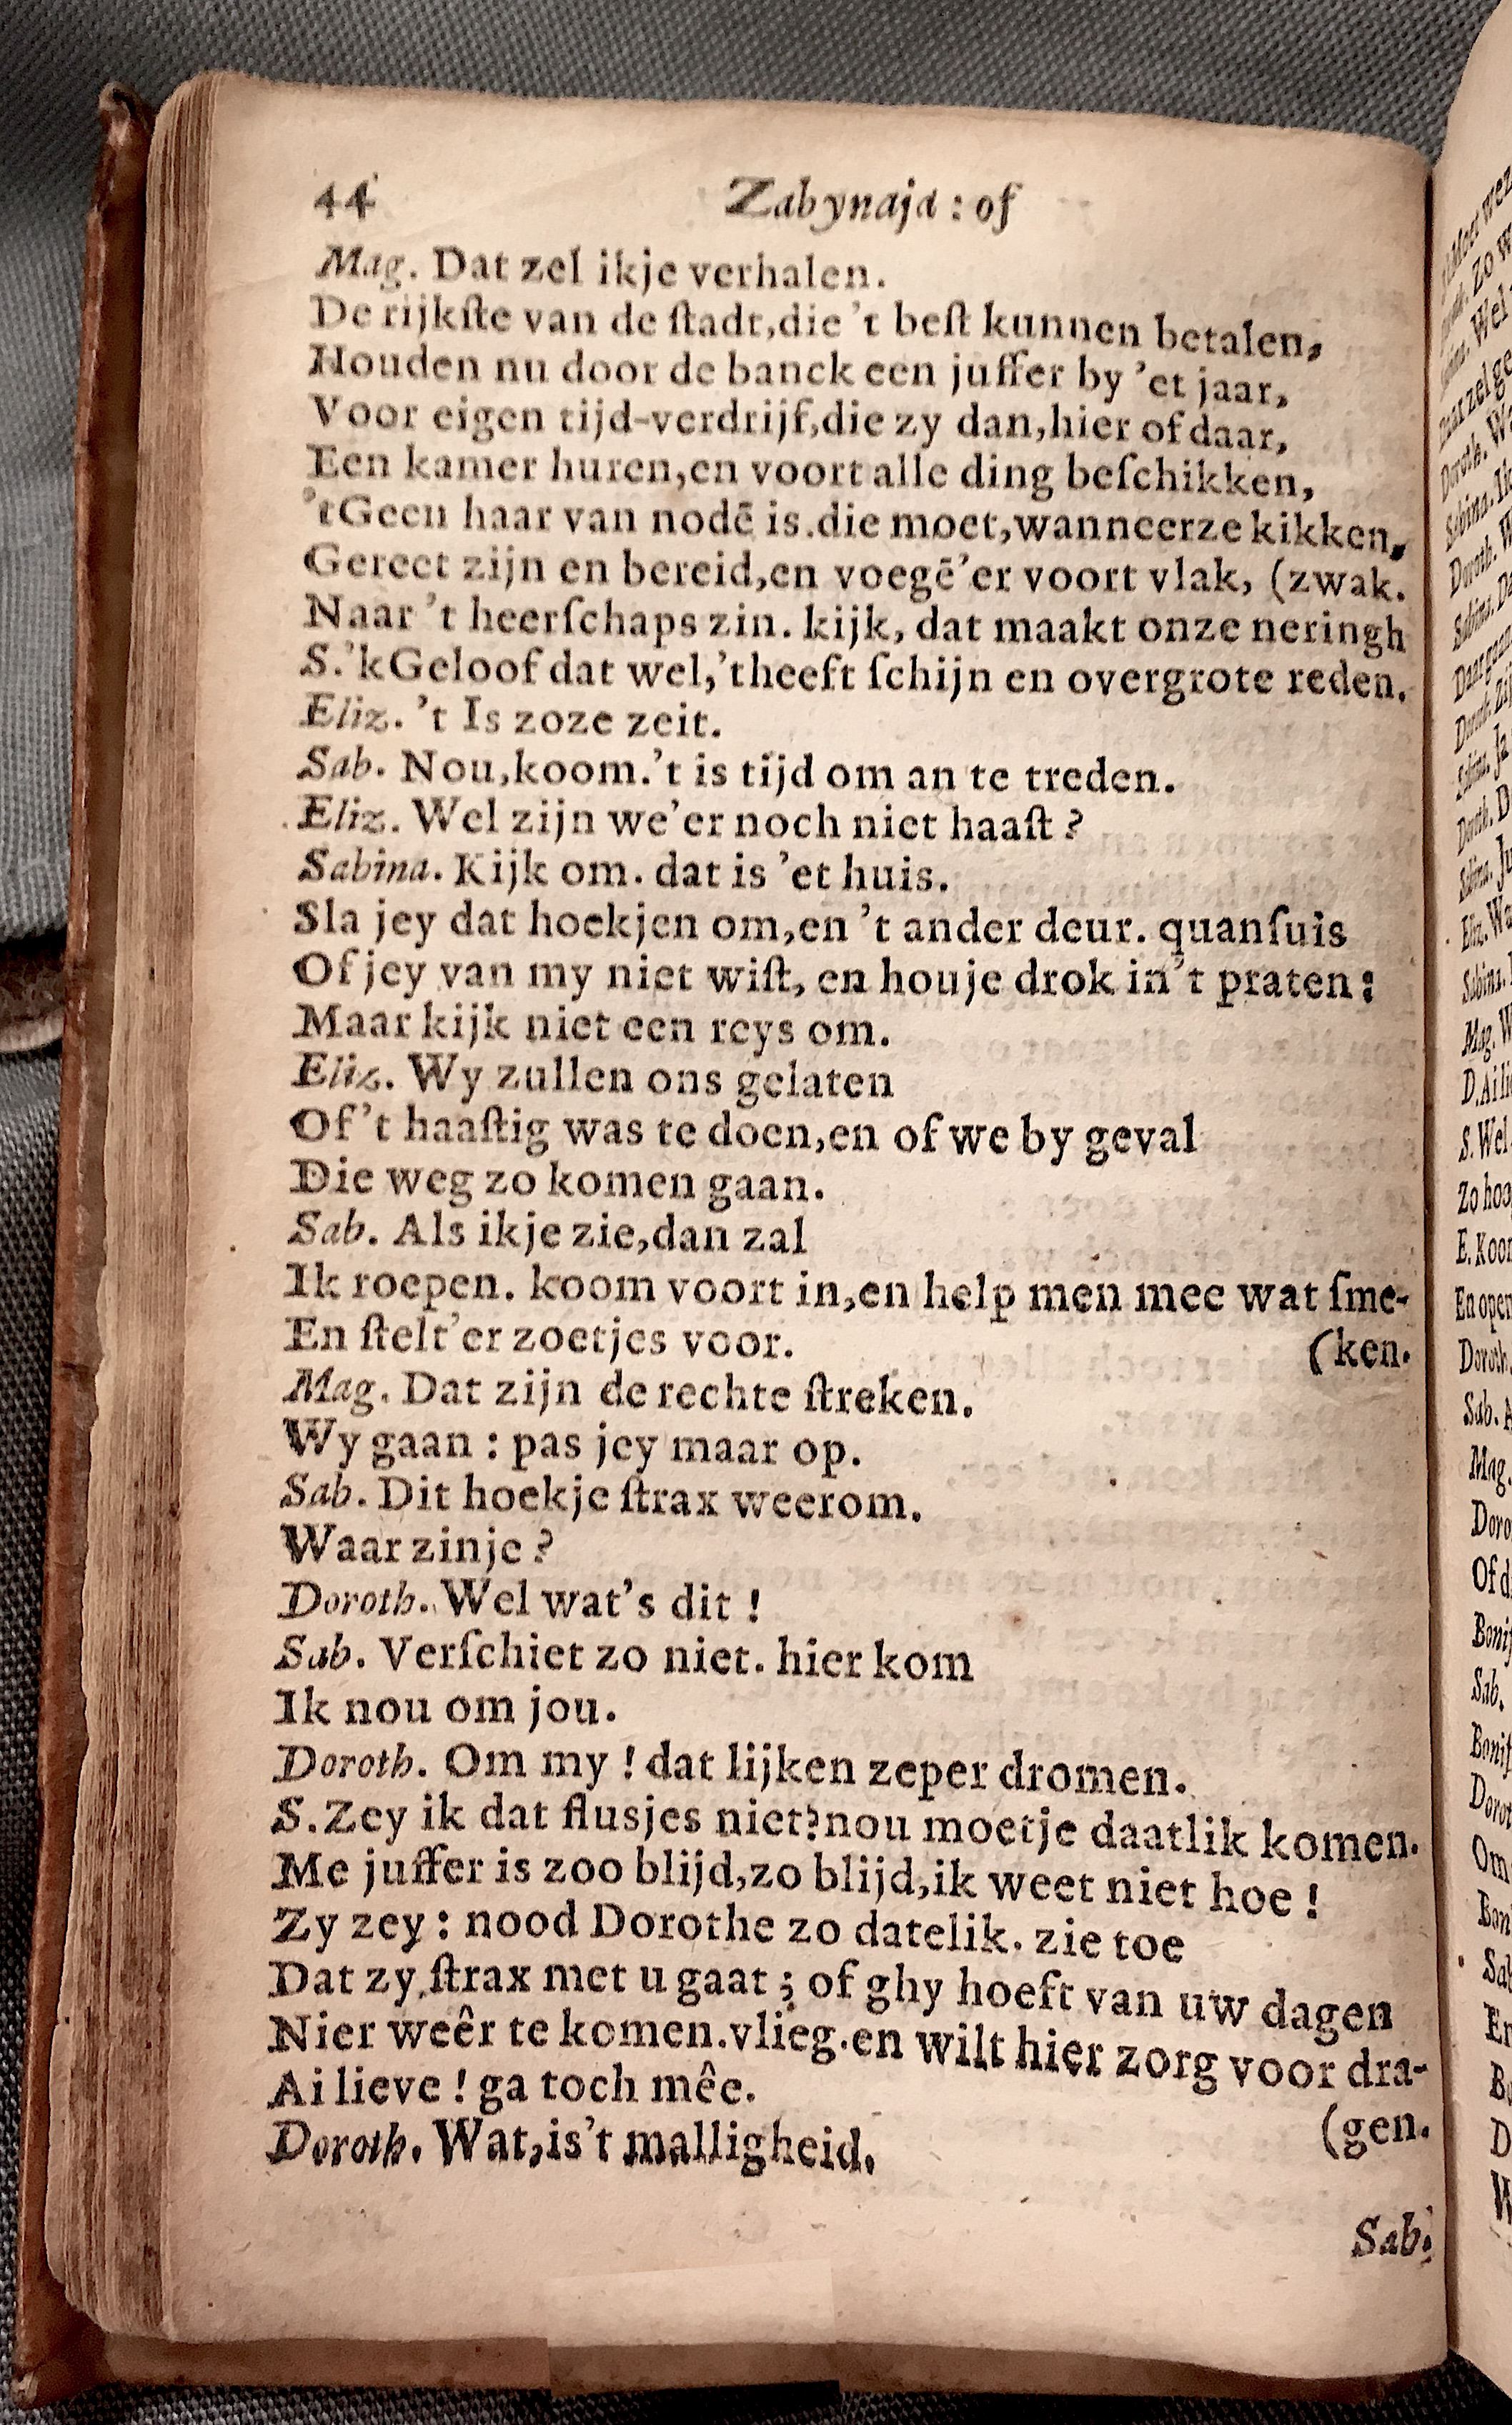 44 Zabynaja : of
Mag. Dat zel ikje verhalen.
De rijkſte van de ſtadt,die 't beſt kunnen betalen,
Houden nu door de banck een juffer by 'et jaar,
Voor eigen tijd-verdrijf,die zy dan,hier of daar,
Een kamer huren,en voort alle ding beſchikken,
'tGeen haar van nodē is.die moet,wanneerze kikken,
Gereet zijn en bereid,en voegē'er voort vlak, (zwak.
Naar 't heerſchaps zin. kijk, dat maakt onze neringh
S.'kGeloof dat wel,'theeft ſchijn en overgrote reden.
Eliz. 't Is zoze zeit.
Sab. Nou,koom.'t is tijd om an te treden.
Eliz. Wel zijn we'er noch niet haaſt ?
Sabina. Kijk om. dat is 'et huis.
Sla jey dat hoekjen om,en 't ander deur. quanſuis
Of jey van my niet wiſt, en houje drok in't praten:
Maar kijk niet een reys om.
Eliz. Wy zullen ons gelaten
Of't haaſtig was te doen,en of we by geval
Die weg zo komen gaan.
Sab. Als ikje zie,dan zal
Ik roepen. koom voort in,en help men mee wat ſme-
En ſtelt'er zoetjes voor. (ken.
Mag. Dat zijn de rechte ſtreken.
Wy gaan : pas jey maar op.
Sab. Dit hoekje ſtrax weerom.
Waar zinje ?
Doroth. Wel wat's dit !
Sab. Verſchiet zo niet. hier kom
Ik nou om jou.
Doroth. Om my ! dat lijken zeper dromen.
S.Zey ik dat fluſjes niet?nou moetje daatlik komen.
Me juffer is zoo blijd,zo blijd,ik weet niet hoe !
Zy zey : nood Dorothe zo datelik. zie toe
Dat zy ſtrax met u gaat ; of ghy hoeft van uw dagen
Nier weêr te komen.vlieg.en wilt hier zorg voor dra-
Ai lieve ! ga toch mêe. (gen.
Doroth. Wat,is't malligheid.
Sab.